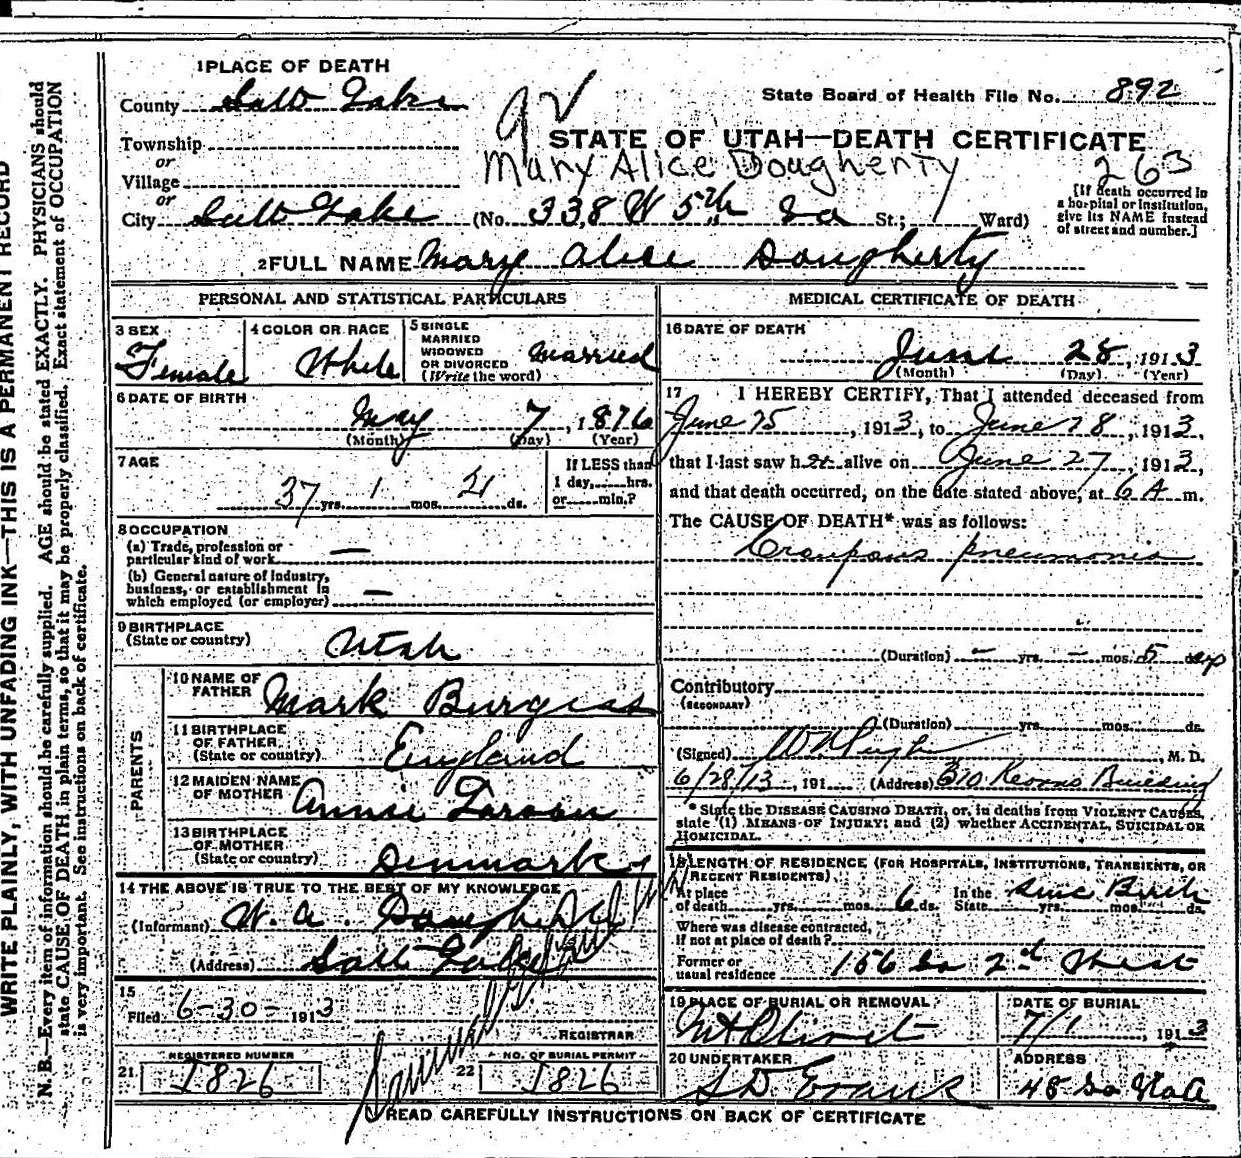 WRITE PLAINLY, WITH UNFADING INK—THIS IS A PERMANENT RECORD
N. B.—Every item of information should be carefully supplied. AGE should be stated EXACTLY. PHYSICIANS should
state CAUSE OF DEATH in plain terms, so that it may be properly classified. Exact statement of OCCUPATION
is very important. See instructions on back of certificate.
1 PLACE OF DEATH
County Salt Lake
State Board of Health File No. 892
Township
or
STATE OF UTAH—DEATH CERTIFICATE
Mary Alice Dougherty
263
Village
or
City Salt Lake (No. 338 W 5th So St.; Ward)
[If death occurred in
a hospital or institution,
give its NAME instead
of street and number.]
2 FULL NAME Mary Alice Dougherty
PERSONAL AND STATISTICAL PARTICULARS
3 SEX
Female
4 COLOR OR RACE
White
5 SINGLE
MARRIED
WIDOWED
OR DIVORCED
(Write the word)
Married
6 DATE OF BIRTH
May 7, 1876
(Month) (Day) (Year)
7 AGE
37 yrs. 1 mos. 21 ds.
If LESS than
1 day, hrs.
or min.?
8 OCCUPATION
(a) Trade, profession or
particular kind of work —
(b) General nature of Industry,
business, or establishment in
which employed (or employer) —
9 BIRTHPLACE
(State or country)
Utah
PARENTS
10 NAME OF
FATHER
Mark Burgess
11 BIRTHPLACE
OF FATHER
(State or country)
England
12 MAIDEN NAME
OF MOTHER
Annie Larson
13 BIRTHPLACE
OF MOTHER
(State or country)
Denmark
14 THE ABOVE IS TRUE TO THE BEST OF MY KNOWLEDGE
(Informant) W. A. Dougherty
(Address) Salt Lake
15
Filed 6-30- 1913
REGISTRAR
21 REGISTERED NUMBER
J826
22 NO. OF BURIAL PERMIT
J826
MEDICAL CERTIFICATE OF DEATH
16 DATE OF DEATH
June 28, 1913
(Month) (Day) (Year)
17 I HEREBY CERTIFY, That I attended deceased from
June 25, 1913, to June 28, 1913,
that I last saw her alive on June 27, 1913,
and that death occurred, on the date stated above, at 6 A m.
The CAUSE OF DEATH* was as follows:
Croupous pneumonia
(Duration) — yrs. — mos. 5 days
Contributory
(SECONDARY)
(Duration) yrs. mos. ds.
(Signed) , M. D.
6/28/13, 191 (Address) 310 Kearns Building
* State the DISEASE CAUSING DEATH, or, in deaths from VIOLENT CAUSES,
state (1) MEANS OF INJURY; and (2) whether ACCIDENTAL, SUICIDAL OR
HOMICIDAL.
18 LENGTH OF RESIDENCE (FOR HOSPITALS, INSTITUTIONS, TRANSIENTS, OR
RECENT RESIDENTS)
At place
of death yrs. mos. 6 ds.
In the
State Since Birth yrs. mos. ds.
Where was disease contracted,
if not at place of death?
Former or
usual residence 156 So 2nd West
19 PLACE OF BURIAL OR REMOVAL
Mt Olivet
DATE OF BURIAL
7/1, 1913
20 UNDERTAKER
S D Evans
ADDRESS
48 So State
READ CAREFULLY INSTRUCTIONS ON BACK OF CERTIFICATE